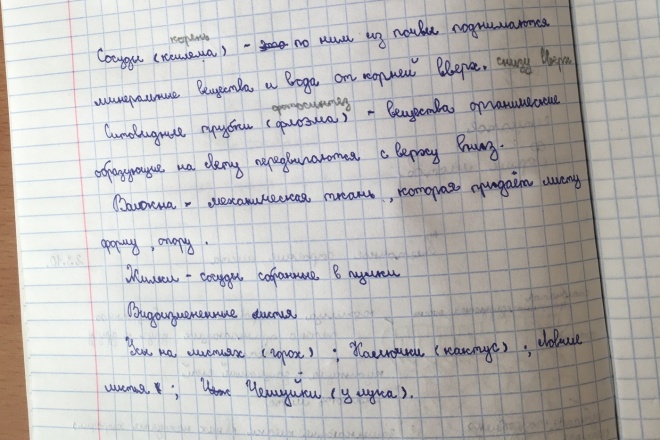 корень
Сосуды (ксилема) - это по ним из почвы поднимаются
минеральные вещества и вода от корней вверх. снизу вверх
фотосинтез
Ситовидные трубки (флоэма) - вещества органические
образующие на свету передвигаются с верху вниз.
Волокна - механическая ткань, которая придаёт листу
форму, опору.
Жилки - сосуды собранные в пучки
Видоизмененные листья
Усы на листьях (горох); Колючки (кактус); Ловчие
листья; Чешуйки (у лука).